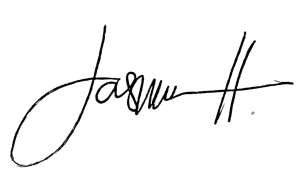 Jasmin H.